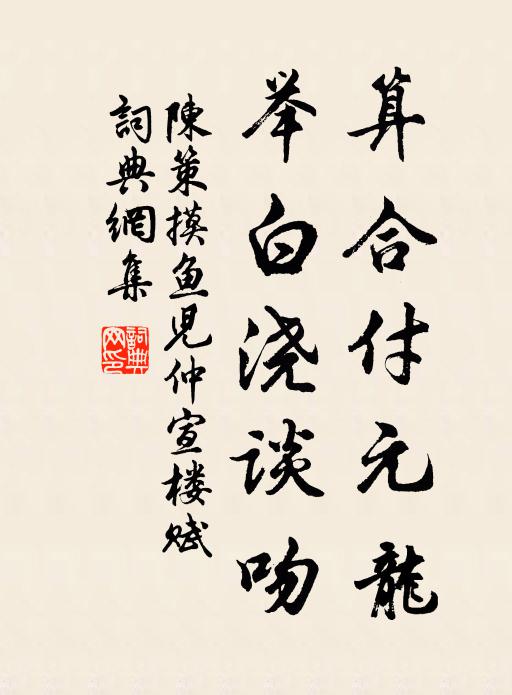 算合付元龍
举白浇谈吻
陳策摸鱼児仲宣楼赋
詞典網集
詞典網印